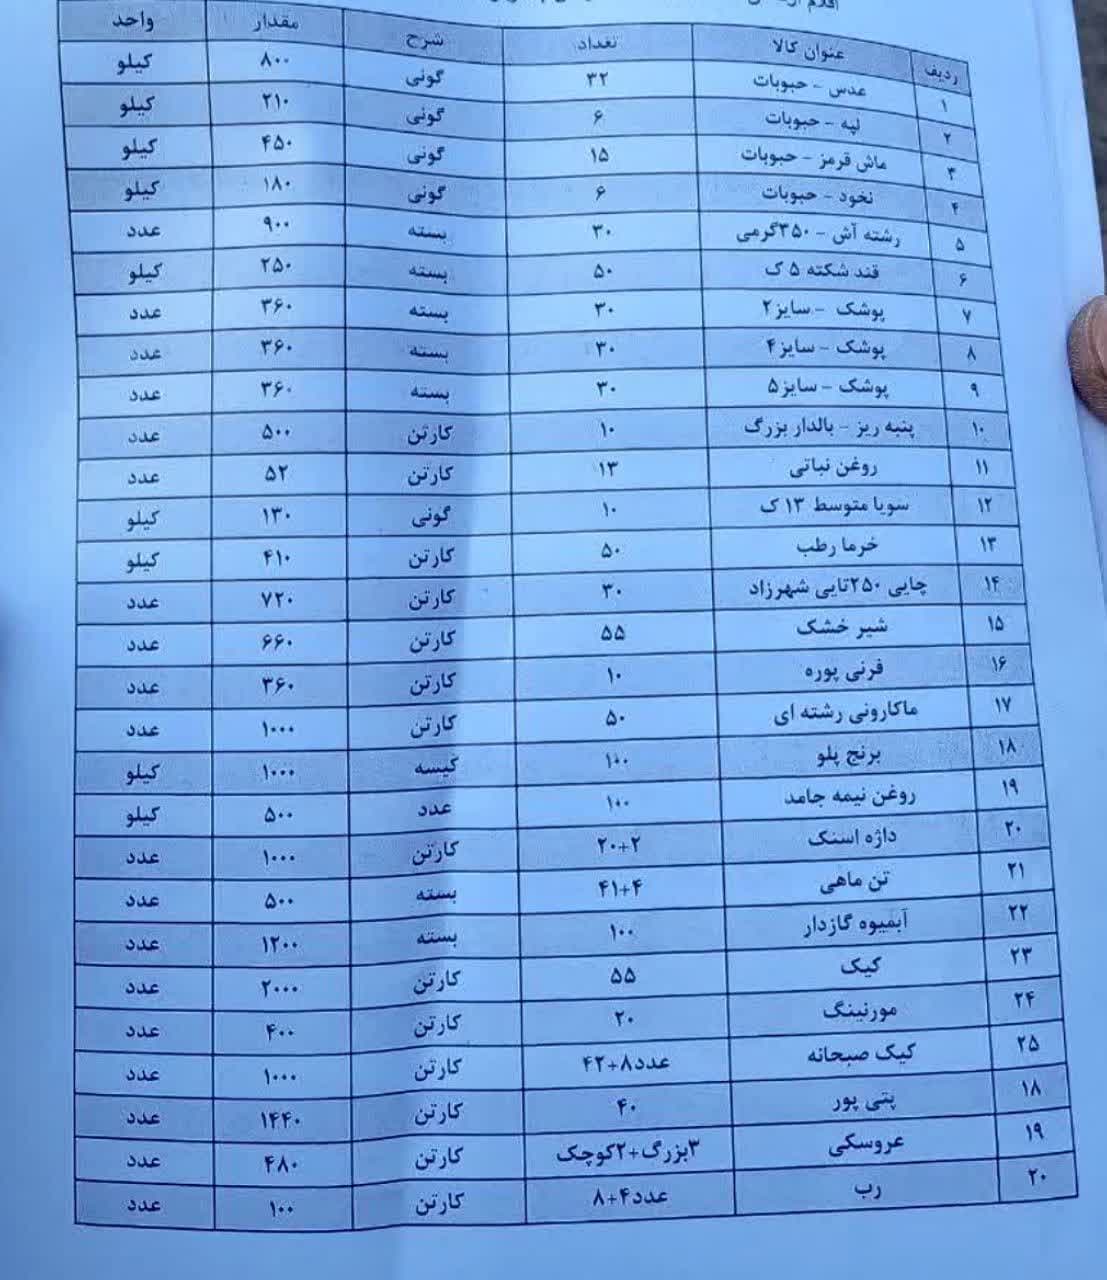 ردیف عنوان کالا تعداد شرح مقدار واحد
۱ عدس - حبوبات ۳۲ گونی ۸۰۰ کیلو
۲ لپه - حبوبات ۶ گونی ۲۱۰ کیلو
۳ ماش قرمز - حبوبات ۱۵ گونی ۴۵۰ کیلو
۴ نخود - حبوبات ۶ گونی ۱۸۰ کیلو
۵ رشته آش - ۳۵۰گرمی ۳۰ بسته ۹۰۰ عدد
۶ قند شکته ۵ ک ۵۰ بسته ۲۵۰ کیلو
۷ پوشک - سایز۲ ۳۰ بسته ۳۶۰ عدد
۸ پوشک - سایز۴ ۳۰ بسته ۳۶۰ عدد
۹ پوشک - سایز۵ ۳۰ بسته ۳۶۰ عدد
۱۰ پنبه ریز - بالدار بزرگ ۱۰ کارتن ۵۰۰ عدد
۱۱ روغن نباتی ۱۳ کارتن ۵۲ عدد
۱۲ سویا متوسط ۱۳ ک ۱۰ گونی ۱۳۰ کیلو
۱۳ خرما رطب ۵۰ کارتن ۴۱۰ کیلو
۱۴ چایی ۲۵۰تایی شهرزاد ۳۰ کارتن ۷۲۰ عدد
۱۵ شیر خشک ۵۵ کارتن ۶۶۰ عدد
۱۶ فرنی پوره ۱۰ کارتن ۳۶۰ عدد
۱۷ ماکارونی رشته ای ۵۰ کارتن ۱۰۰۰ عدد
۱۸ برنج پلو ۱۰۰ کیسه ۱۰۰۰ کیلو
۱۹ روغن نیمه جامد ۱۰۰ عدد ۵۰۰ کیلو
۲۰ داژه اسنک ۲۰+۲ کارتن ۱۰۰۰ عدد
۲۱ تن ماهی ۴۱+۴ بسته ۵۰۰ عدد
۲۲ آبمیوه گازدار ۱۰۰ بسته ۱۲۰۰ عدد
۲۳ کیک ۵۵ کارتن ۲۰۰۰ عدد
۲۴ مورنینگ ۲۰ کارتن ۴۰۰ عدد
۲۵ کیک صبحانه ۴۲+۸عدد کارتن ۱۰۰۰ عدد
۱۸ پتی پور ۴۰ کارتن ۱۴۴۰ عدد
۱۹ عروسکی ۳بزرگ+۲کوچک کارتن ۴۸۰ عدد
۲۰ رب ۸+۴عدد کارتن ۱۰۰ عدد